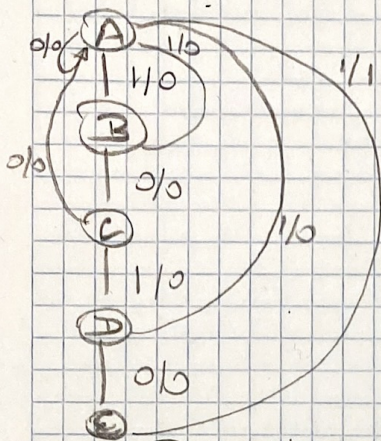 A
0/0 1/0 1/1
1/0
B
0/0 0/0
C
1/0 1/0
D
0/0
E